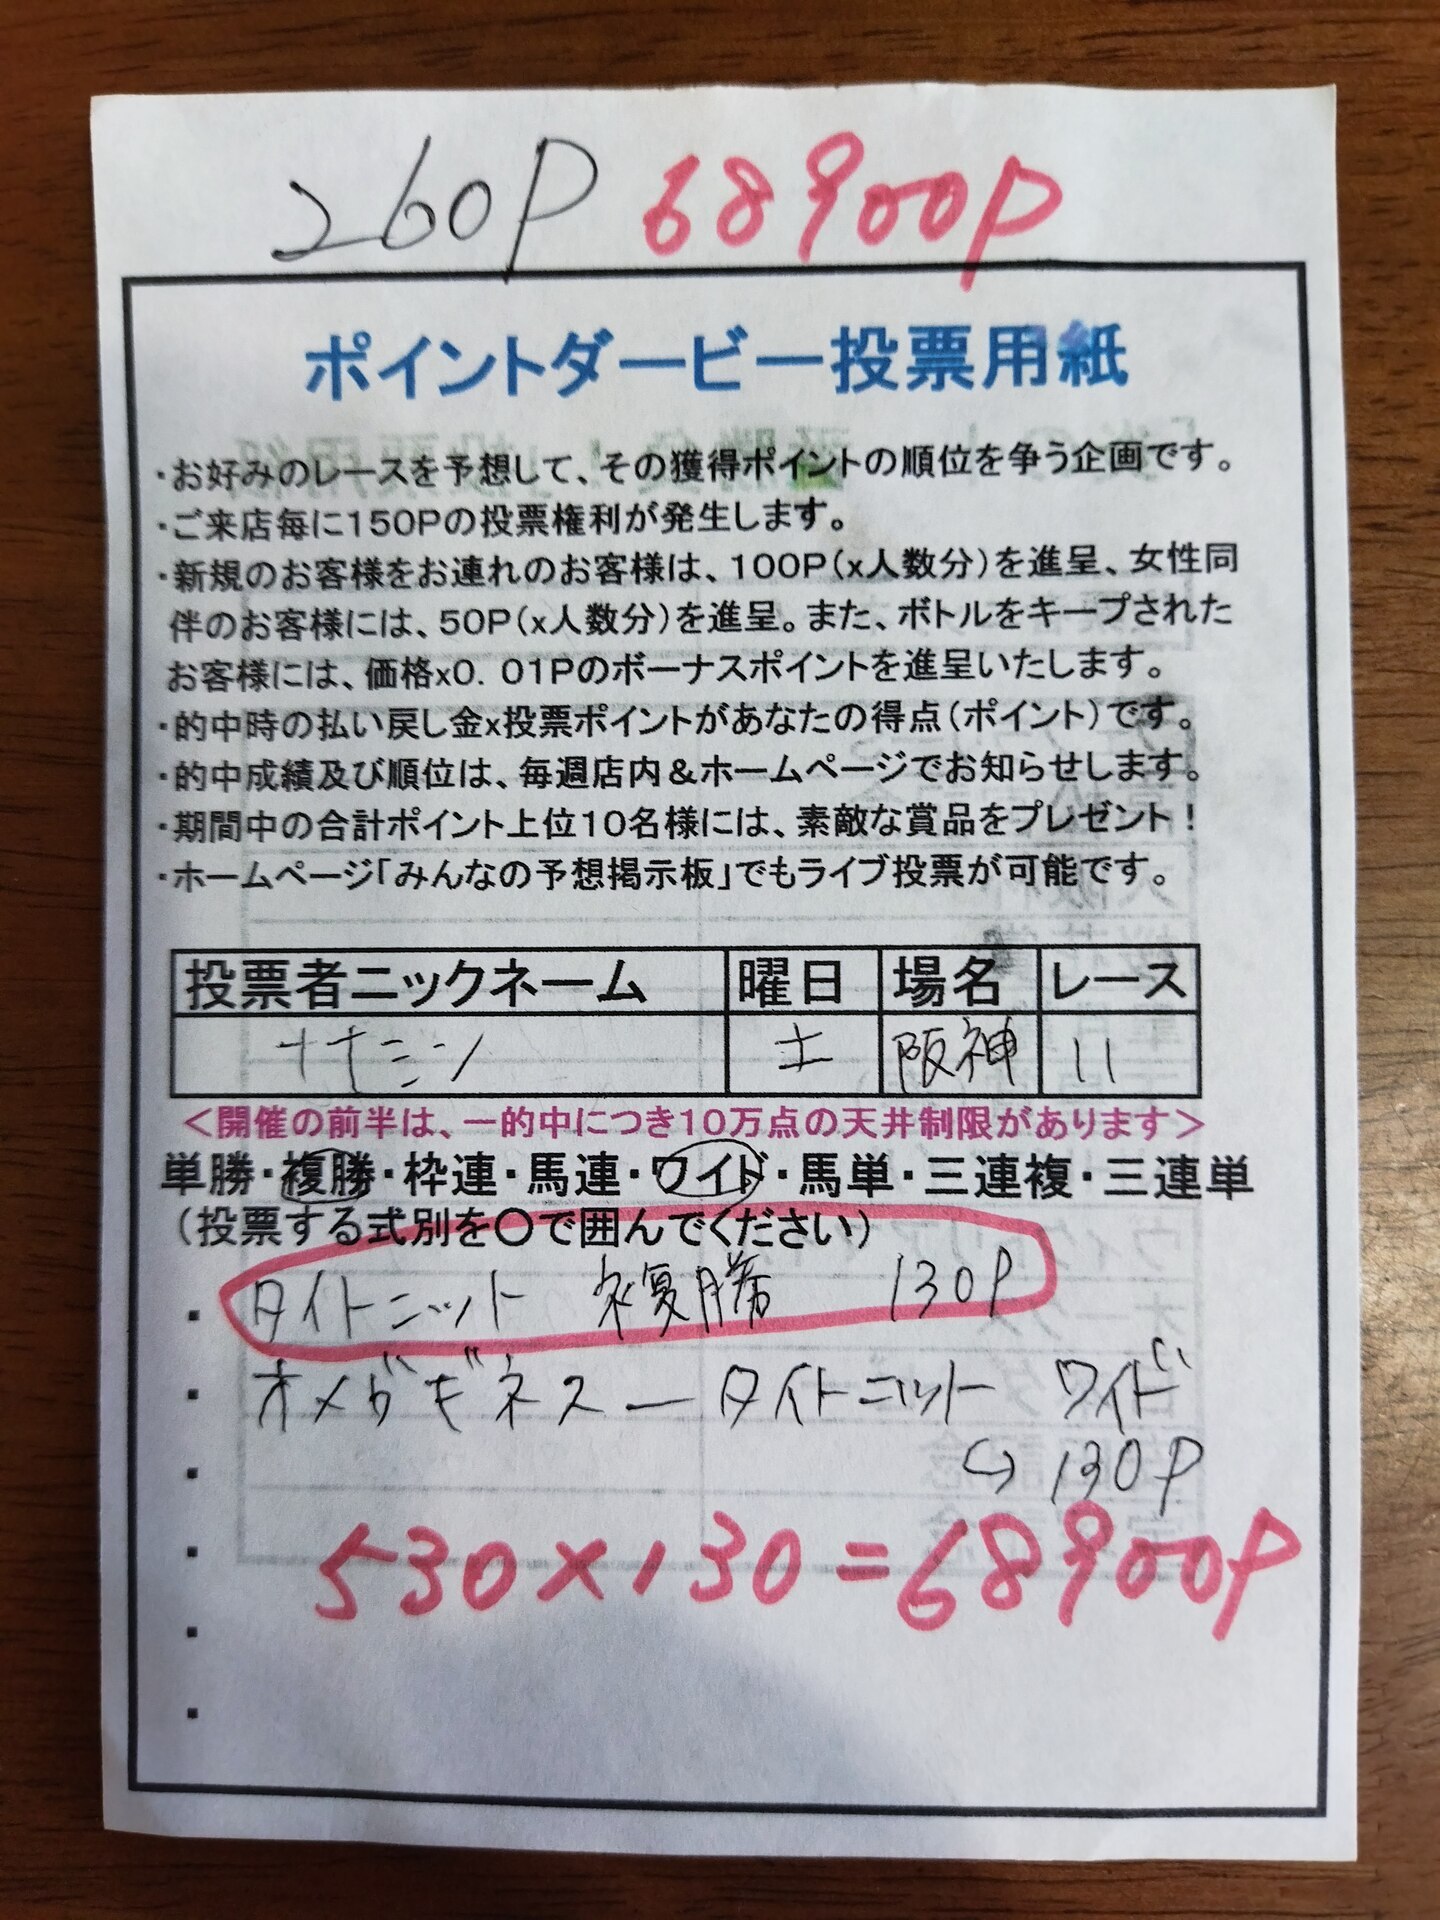 260P 68900P
ポイントダービー投票用紙
・お好みのレースを予想して、その獲得ポイントの順位を争う企画です。
・ご来店毎に150Pの投票権利が発生します。
・新規のお客様をお連れのお客様は、100P(x人数分)を進呈、女性同
伴のお客様には、50P(x人数分)を進呈。また、ボトルをキープされた
お客様には、価格x0.01Pのボーナスポイントを進呈いたします。
・的中時の払い戻し金x投票ポイントがあなたの得点(ポイント)です。
・的中成績及び順位は、毎週店内&ホームページでお知らせします。
・期間中の合計ポイント上位10名様には、素敵な賞品をプレゼント!
・ホームページ「みんなの予想掲示板」でもライブ投票が可能です。
投票者ニックネーム 曜日 場名 レース
ナナミン 土 阪神 11
<開催の前半は、一的中につき10万点の天井制限があります>
単勝・複勝・枠連・馬連・ワイド・馬単・三連複・三連単
(投票する式別を〇で囲んでください)
・ タイトニット 複勝 130P
・ オメガギネス ー タイトニット ワイド
・ ↪ 130P
・ 530×130=68900P
・
・